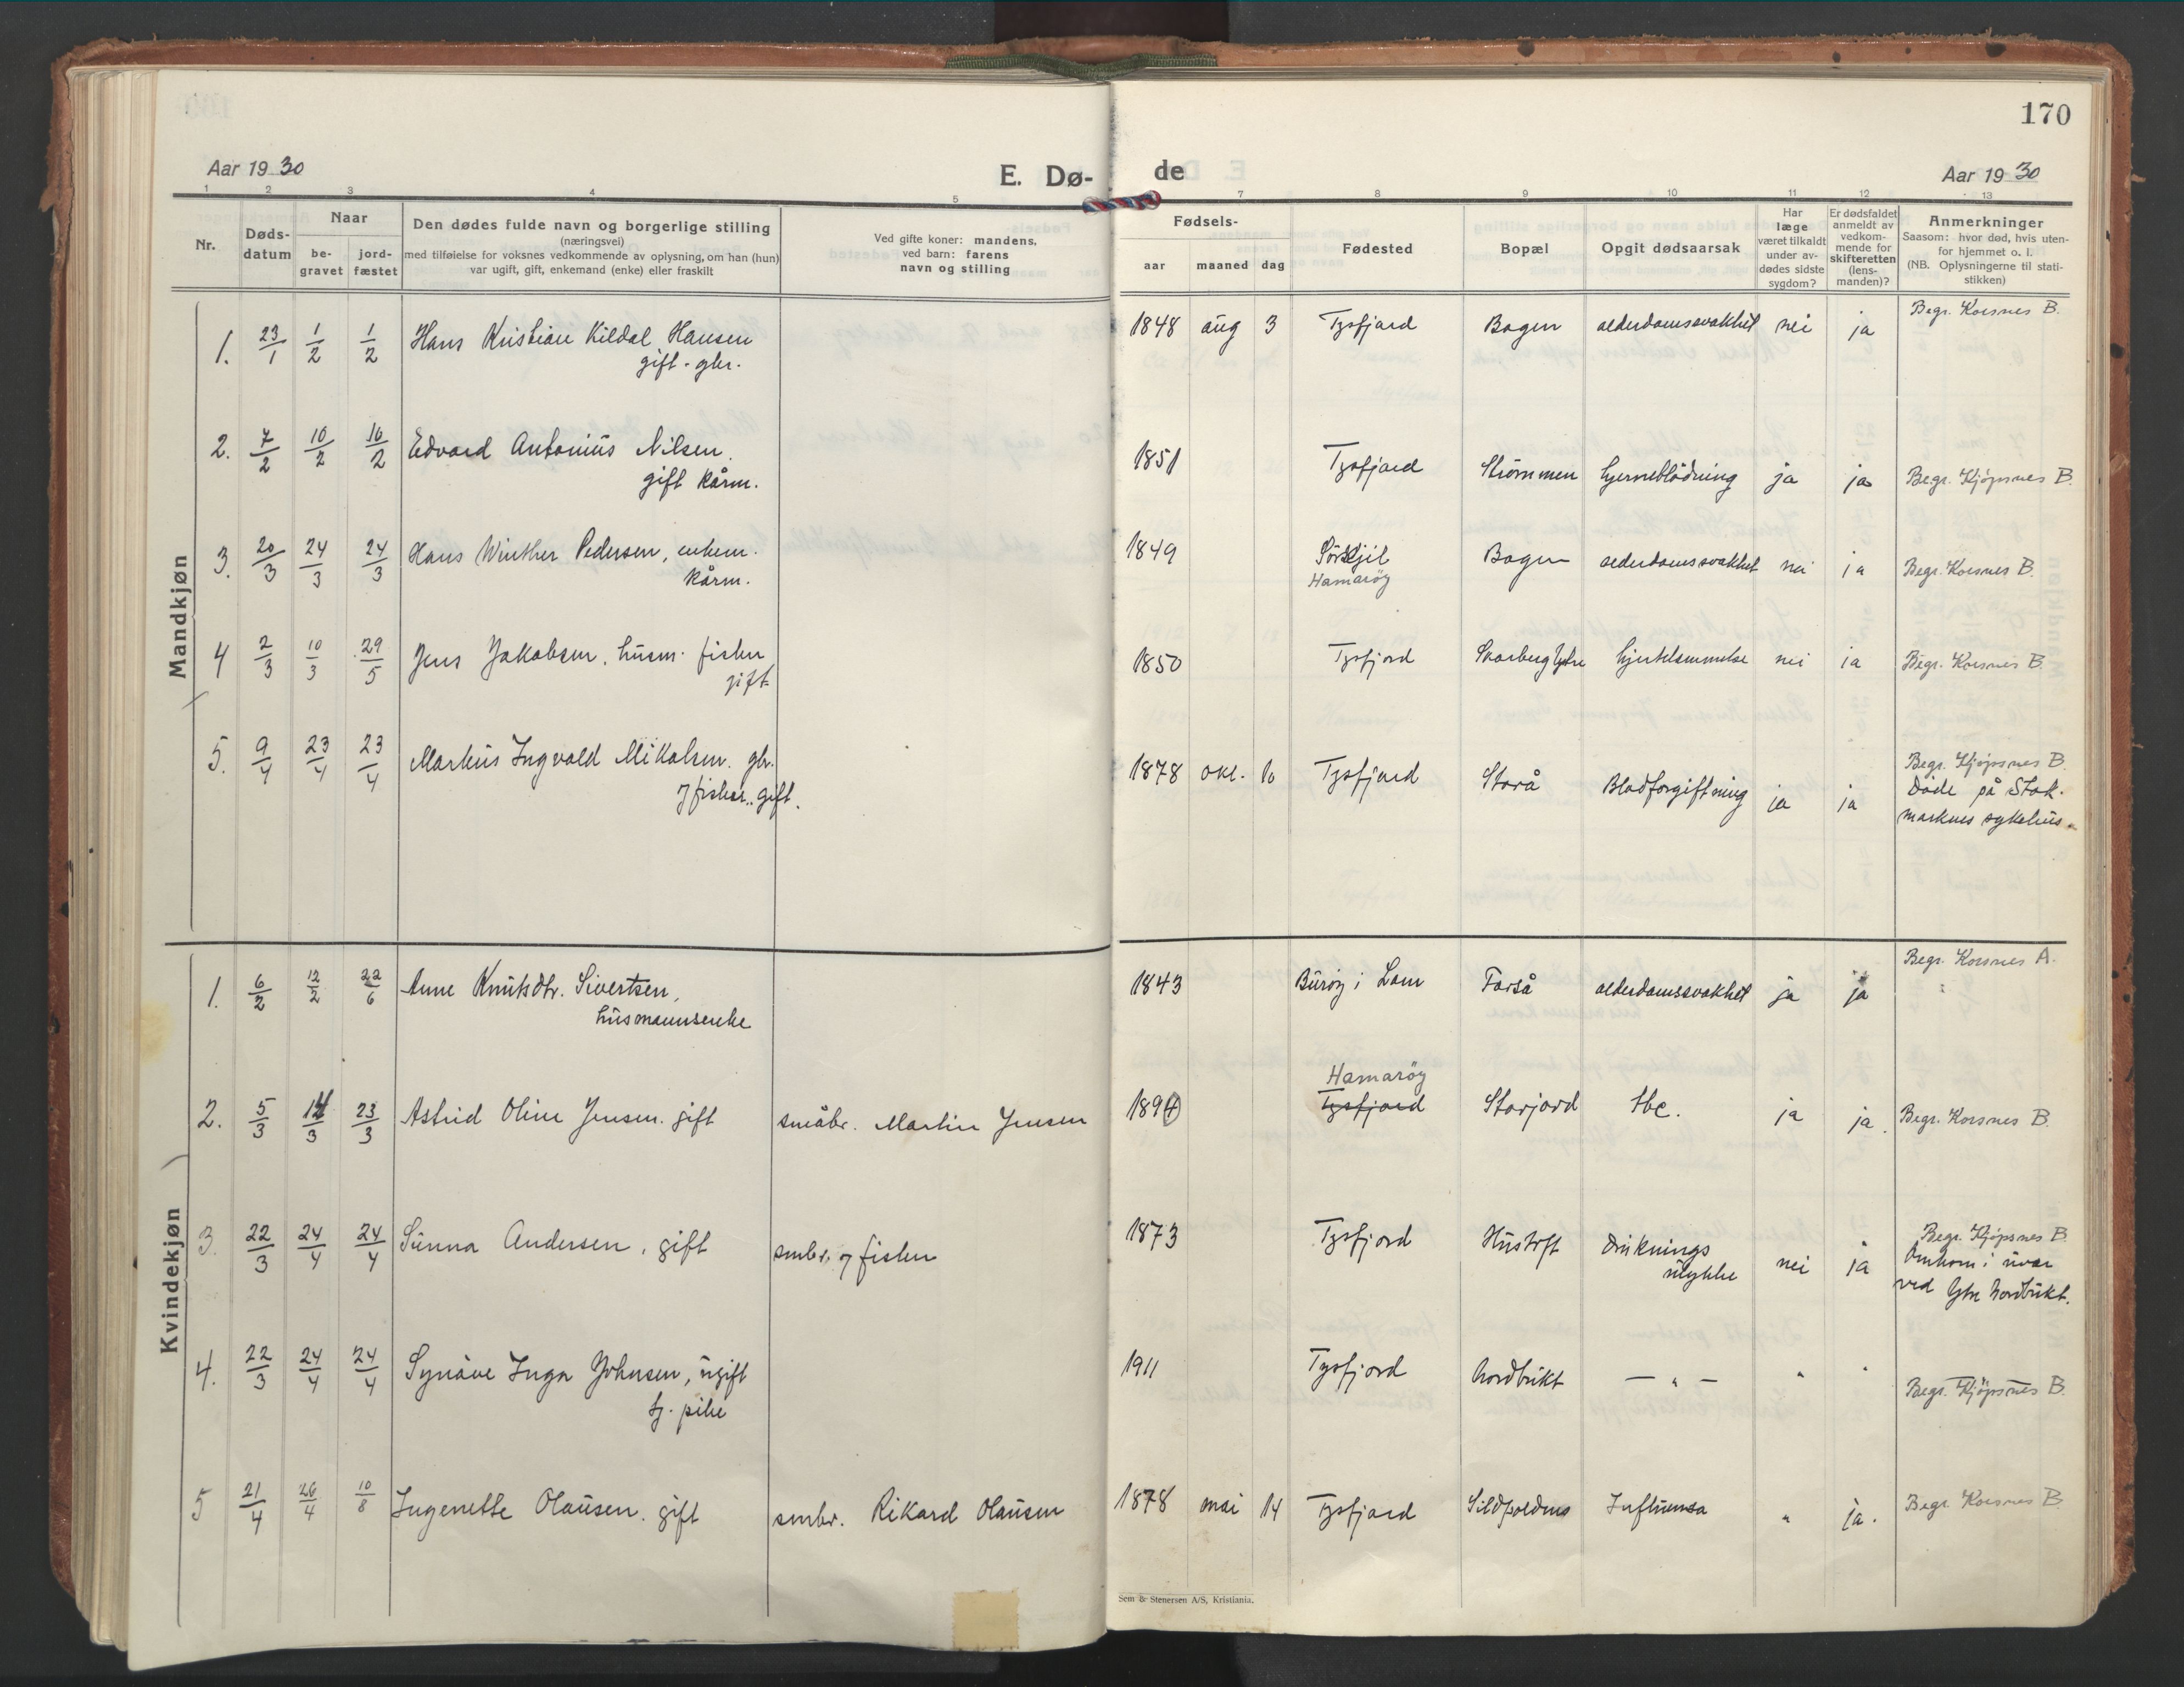 170
Aar 1930
E. Dø-
de
Aar 1930
1 2 3 4 5 7 8 9 10 11 12 13
Nr.
Døds-
datum
Naar
be-
gravet
jord-
fæstet
Den dødes fulde navn og borgerlige stilling
(næringsvei)
med tilføielse for voksnes vedkommende av oplysning, om han (hun)
var ugift, gift, enkemand (enke) eller fraskilt
Ved gifte koner: mandens,
ved barn: farens
navn og stilling
Fødsels-
aar maaned dag
Fødested
Bopæl
Opgit dødsaarsak
Har
læge
været tilkaldt
under av-
dødes sidste
sygdom?
Er dødsfaldet
anmeldt av
vedkom-
mende for
skifteretten
(lens-
manden)?
Anmerkninger
Saasom: hvor død, hvis uten-
for hjemmet o. l.
(NB. Oplysningerne til stati-
stikken)
Mandkjøn
1. 23/1 1/2 1/2 Hans Kristian Kildal Hansen
gift - gbr.
1848 aug 3 Tysfjord Bogen alderdomssvakhet nei ja Begr. Korsnes B.
2. 7/2 10/2 16/2 Edvard Antonius Nilsen.
gift kårm.
1851 Tysfjord Strömmen hjerneblödning ja ja Begr. Kjöpsnes B.
3. 20/3 24/3 24/3 Hans Winther Pedersen, enkem.
kårm.
1849 Sörskjil
Hamaröy
Bogen alderdomssvakhet nei ja Begr. Korsnes B.
4 2/3 10/3 29/5 Jens Jakobsen, husm. fisker
gift
1850 Tysfjord Skarberg Ytre hjertelammelse nei ja Begr. Korsnes B.
5. 9/4 23/4 23/4 Markus Ingvald Mikalsen. gbr.
og fisker. gift.
1878 okt. 10 Tysfjord Storå Blodforgiftning ja ja Begr. Kjöpsnes B.
Döde på Stok-
marknes sykehus.
Kvindekjøn
1. 6/2 12/2 22/6 Anne Knutsdtr. Sivertsen,
husmannsenke
1843 Böröy i Lom Forså alderdomssvakhet ja ja Begr. Korsnes A.
2. 5/3 14/3 23/3 Astrid Oline Jensen. gift småbr. Martin Jensen
1894 Hamaröy
Tysfjord
Storjord tbc. ja ja. Begr. Korsnes B.
3. 22/3 24/4 24/4 Sunna Andersen, gift smbr. og fisker
1873 Tysfjord Hustoft Druknings
ulykke
nei ja Begr. Kjöpsnes B.
Omkom i uvær
ved Ytre Nordbukt.
4. 22/3 24/4 24/4 Synöve Inga Johnsen, ugift
tj. pike
1911 Tysfjord Nordbukt — " — " " Begr. Kjöpsnes B.
5 21/4 26/4 10/8 Ingenette Olausen. gift smbr. Rikard Olausen
1878 mai 14 Tysfjord Sildpoldnes Influensa " ja. Begr. Korsnes B.
Sem & Stenersen A/S, Kristiania.